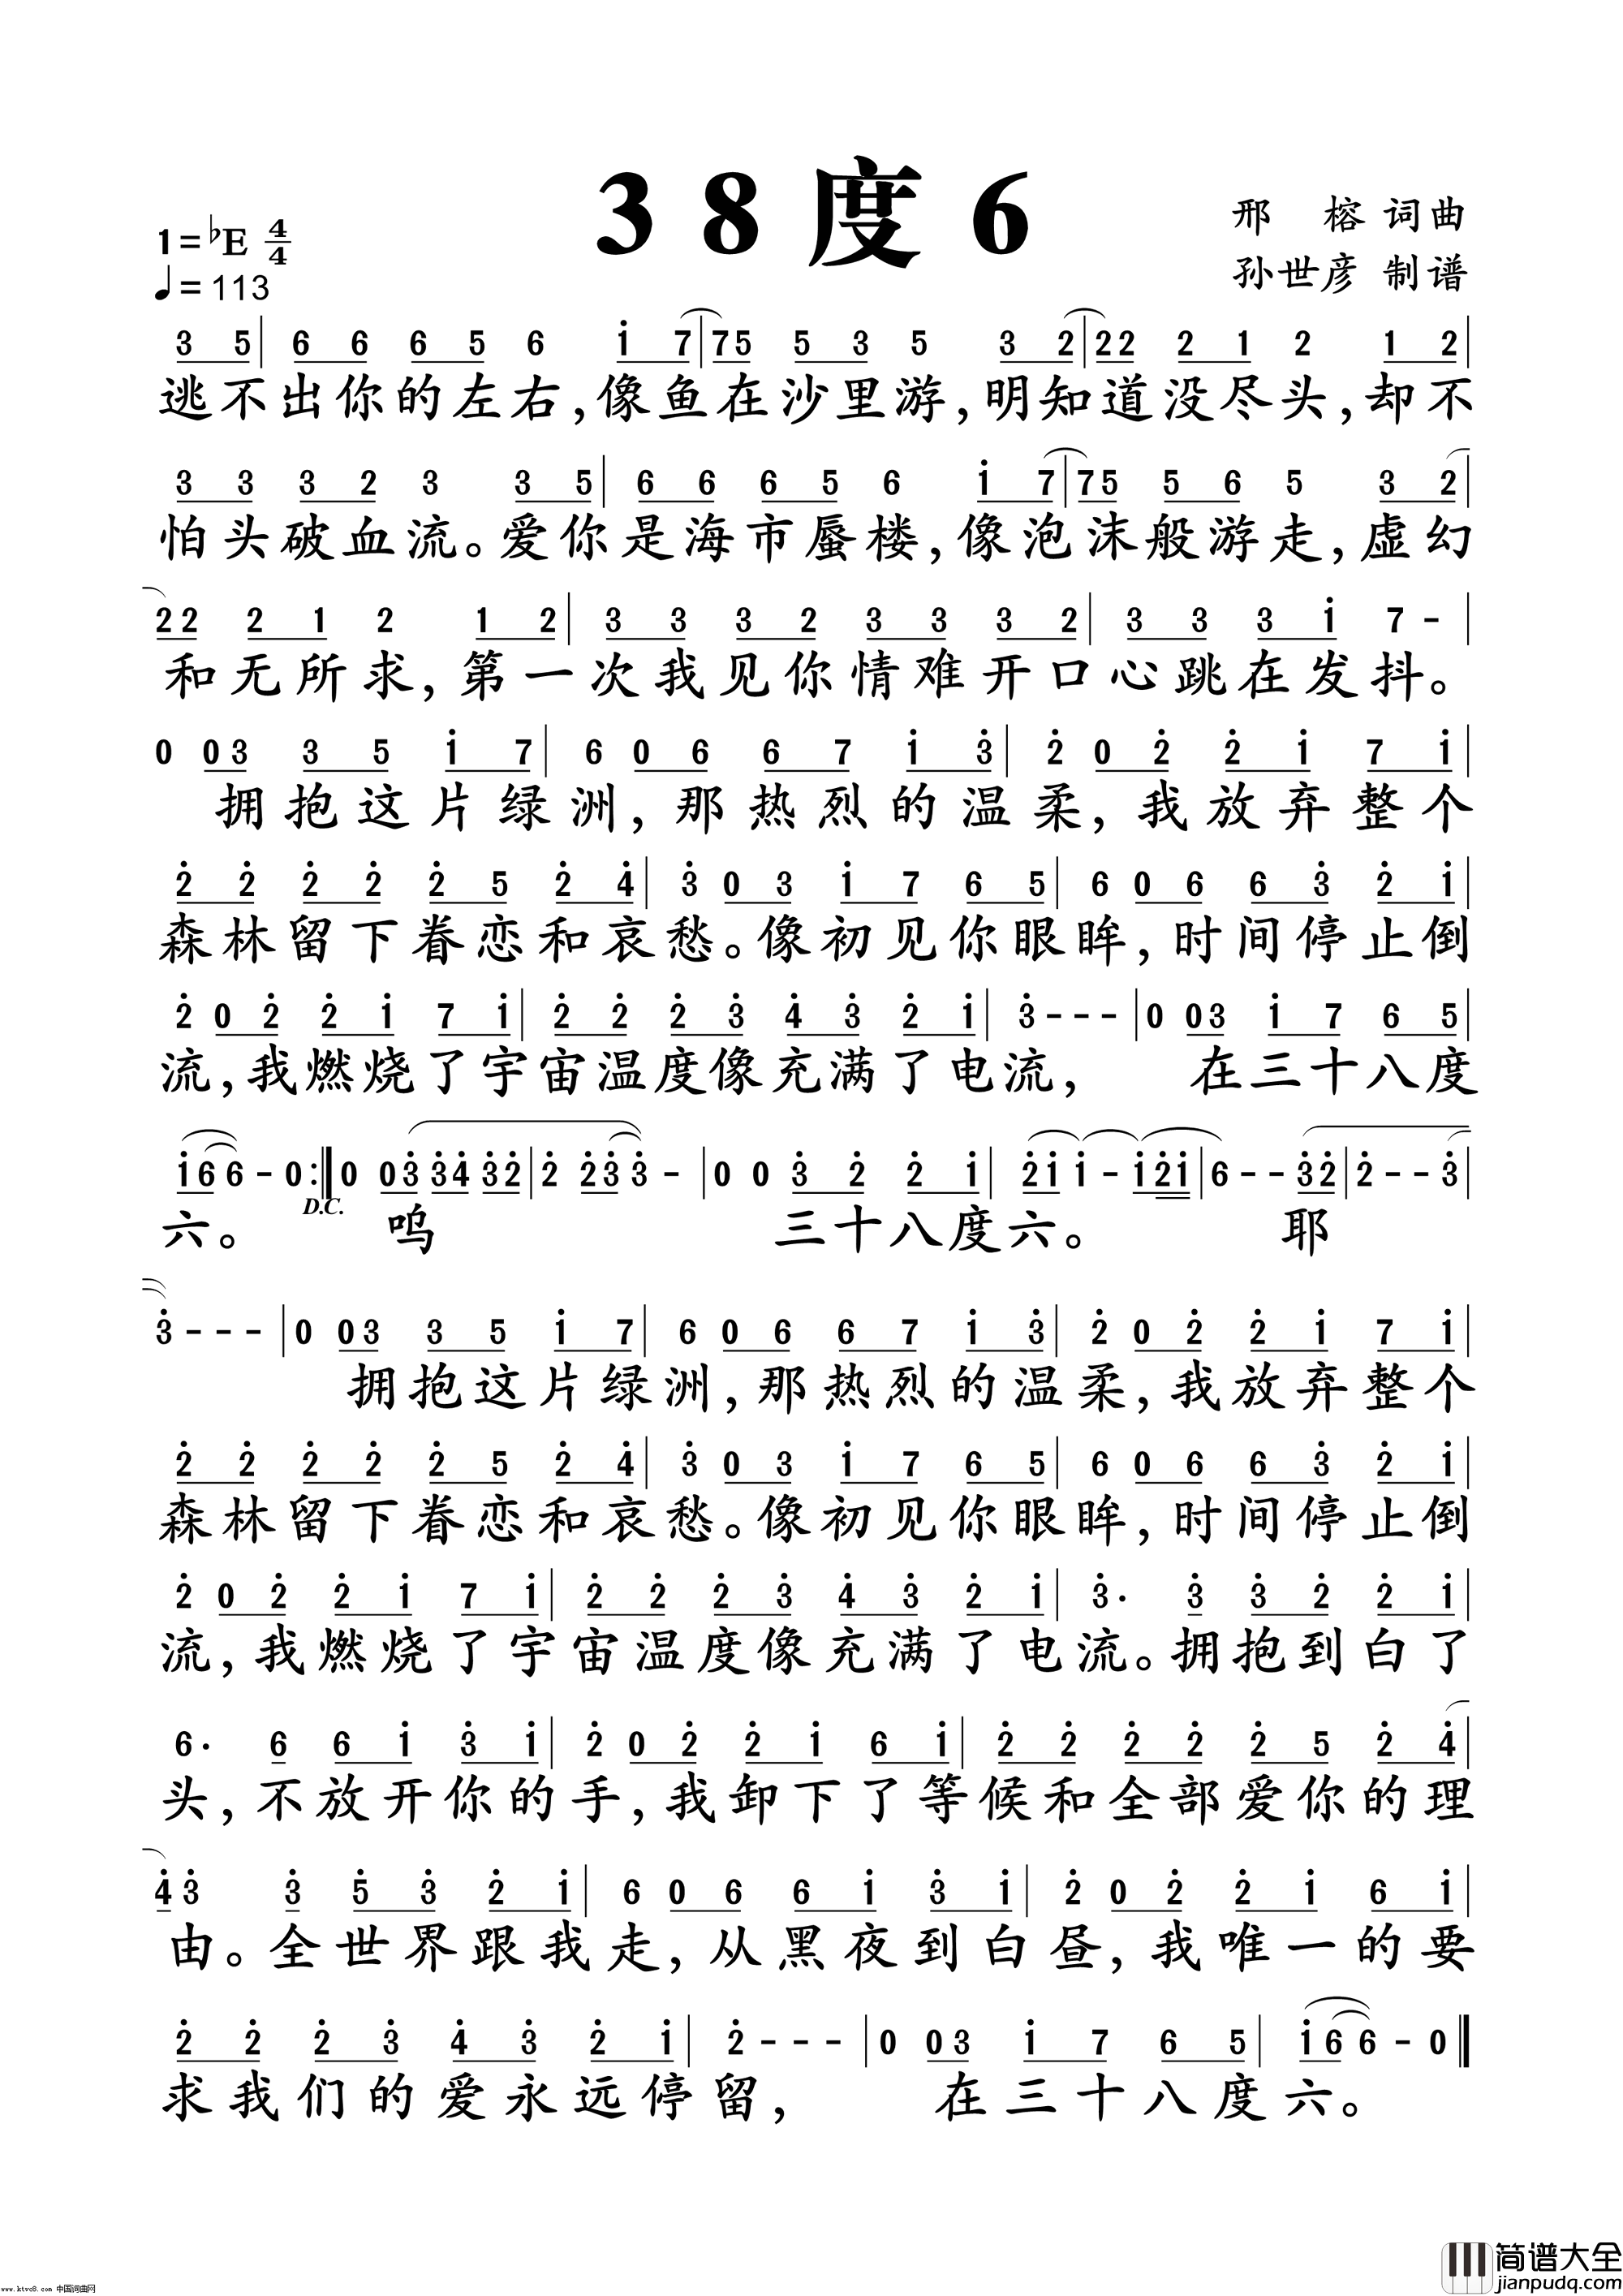 38度6
邢 榕 词曲
孙世彦 制谱
1=♭E 4/4
♩=113
3 5 | 6 6 6 5 6 i 7 | 7 5 5 3 5 3 2 | 2 2 2 1 2 1 2 |
逃不出你的左右,像鱼在沙里游,明知道没尽头,却不
3 3 3 2 3 3 5 | 6 6 6 5 6 i 7 | 7 5 5 6 5 3 2 |
怕头破血流。爱你是海市蜃楼,像泡沫般游走,虚幻
2 2 2 1 2 1 2 | 3 3 3 2 3 3 3 2 | 3 3 3 i 7 - |
和无所求,第一次我见你情难开口心跳在发抖。
0 0 3 3 5 i 7 | 6 0 6 6 7 i 3̇ | 2̇ 0 2̇ 2̇ i 7 i |
拥抱这片绿洲,那热烈的温柔,我放弃整个
2̇ 2̇ 2̇ 2̇ 2̇ 5 2̇ 4̇ | 3̇ 0 3 i 7 6 5 | 6 0 6 6 3̇ 2̇ i |
森林留下眷恋和哀愁。像初见你眼眸,时间停止倒
2̇ 0 2̇ 2̇ i 7 i | 2̇ 2̇ 2̇ 3̇ 4̇ 3̇ 2̇ i | 3̇ - - - | 0 0 3 i 7 6 5 |
流,我燃烧了宇宙温度像充满了电流, 在三十八度
i 6 6 - 0 :‖ 0 0 3̇ 3̇ 4̇ 3̇ 2̇ | 2̇ 2̇ 3̇ 3̇ - | 0 0 3̇ 2̇ 2̇ i | 2̇ i i - i 2̇ i | 6 - - 3̇ 2̇ | 2̇ - - 3̇ |
D.C.
六。 呜 三十八度六。 耶
3̇ - - - | 0 0 3 3 5 i 7 | 6 0 6 6 7 i 3̇ | 2̇ 0 2̇ 2̇ i 7 i |
拥抱这片绿洲,那热烈的温柔,我放弃整个
2̇ 2̇ 2̇ 2̇ 2̇ 5 2̇ 4̇ | 3̇ 0 3 i 7 6 5 | 6 0 6 6 3̇ 2̇ i |
森林留下眷恋和哀愁。像初见你眼眸,时间停止倒
2̇ 0 2̇ 2̇ i 7 i | 2̇ 2̇ 2̇ 3̇ 4̇ 3̇ 2̇ i | 3̇· 3̇ 3̇ 2̇ 2̇ i |
流,我燃烧了宇宙温度像充满了电流。拥抱到白了
6· 6 6 i 3̇ i | 2̇ 0 2̇ 2̇ i 6 i | 2̇ 2̇ 2̇ 2̇ 2̇ 5 2̇ 4̇ |
头,不放开你的手,我卸下了等候和全部爱你的理
4̇ 3̇ 3̇ 5̇ 3̇ 2̇ i | 6 0 6 6 i 3̇ i | 2̇ 0 2̇ 2̇ i 6 i |
由。全世界跟我走,从黑夜到白昼,我唯一的要
2̇ 2̇ 2̇ 3̇ 4̇ 3̇ 2̇ i | 2̇ - - - | 0 0 3 i 7 6 5 | i 6 6 - 0 ‖
求我们的爱永远停留, 在三十八度六。
简谱大全
jianpudq.com
www.ktvc8.com 中国词曲网